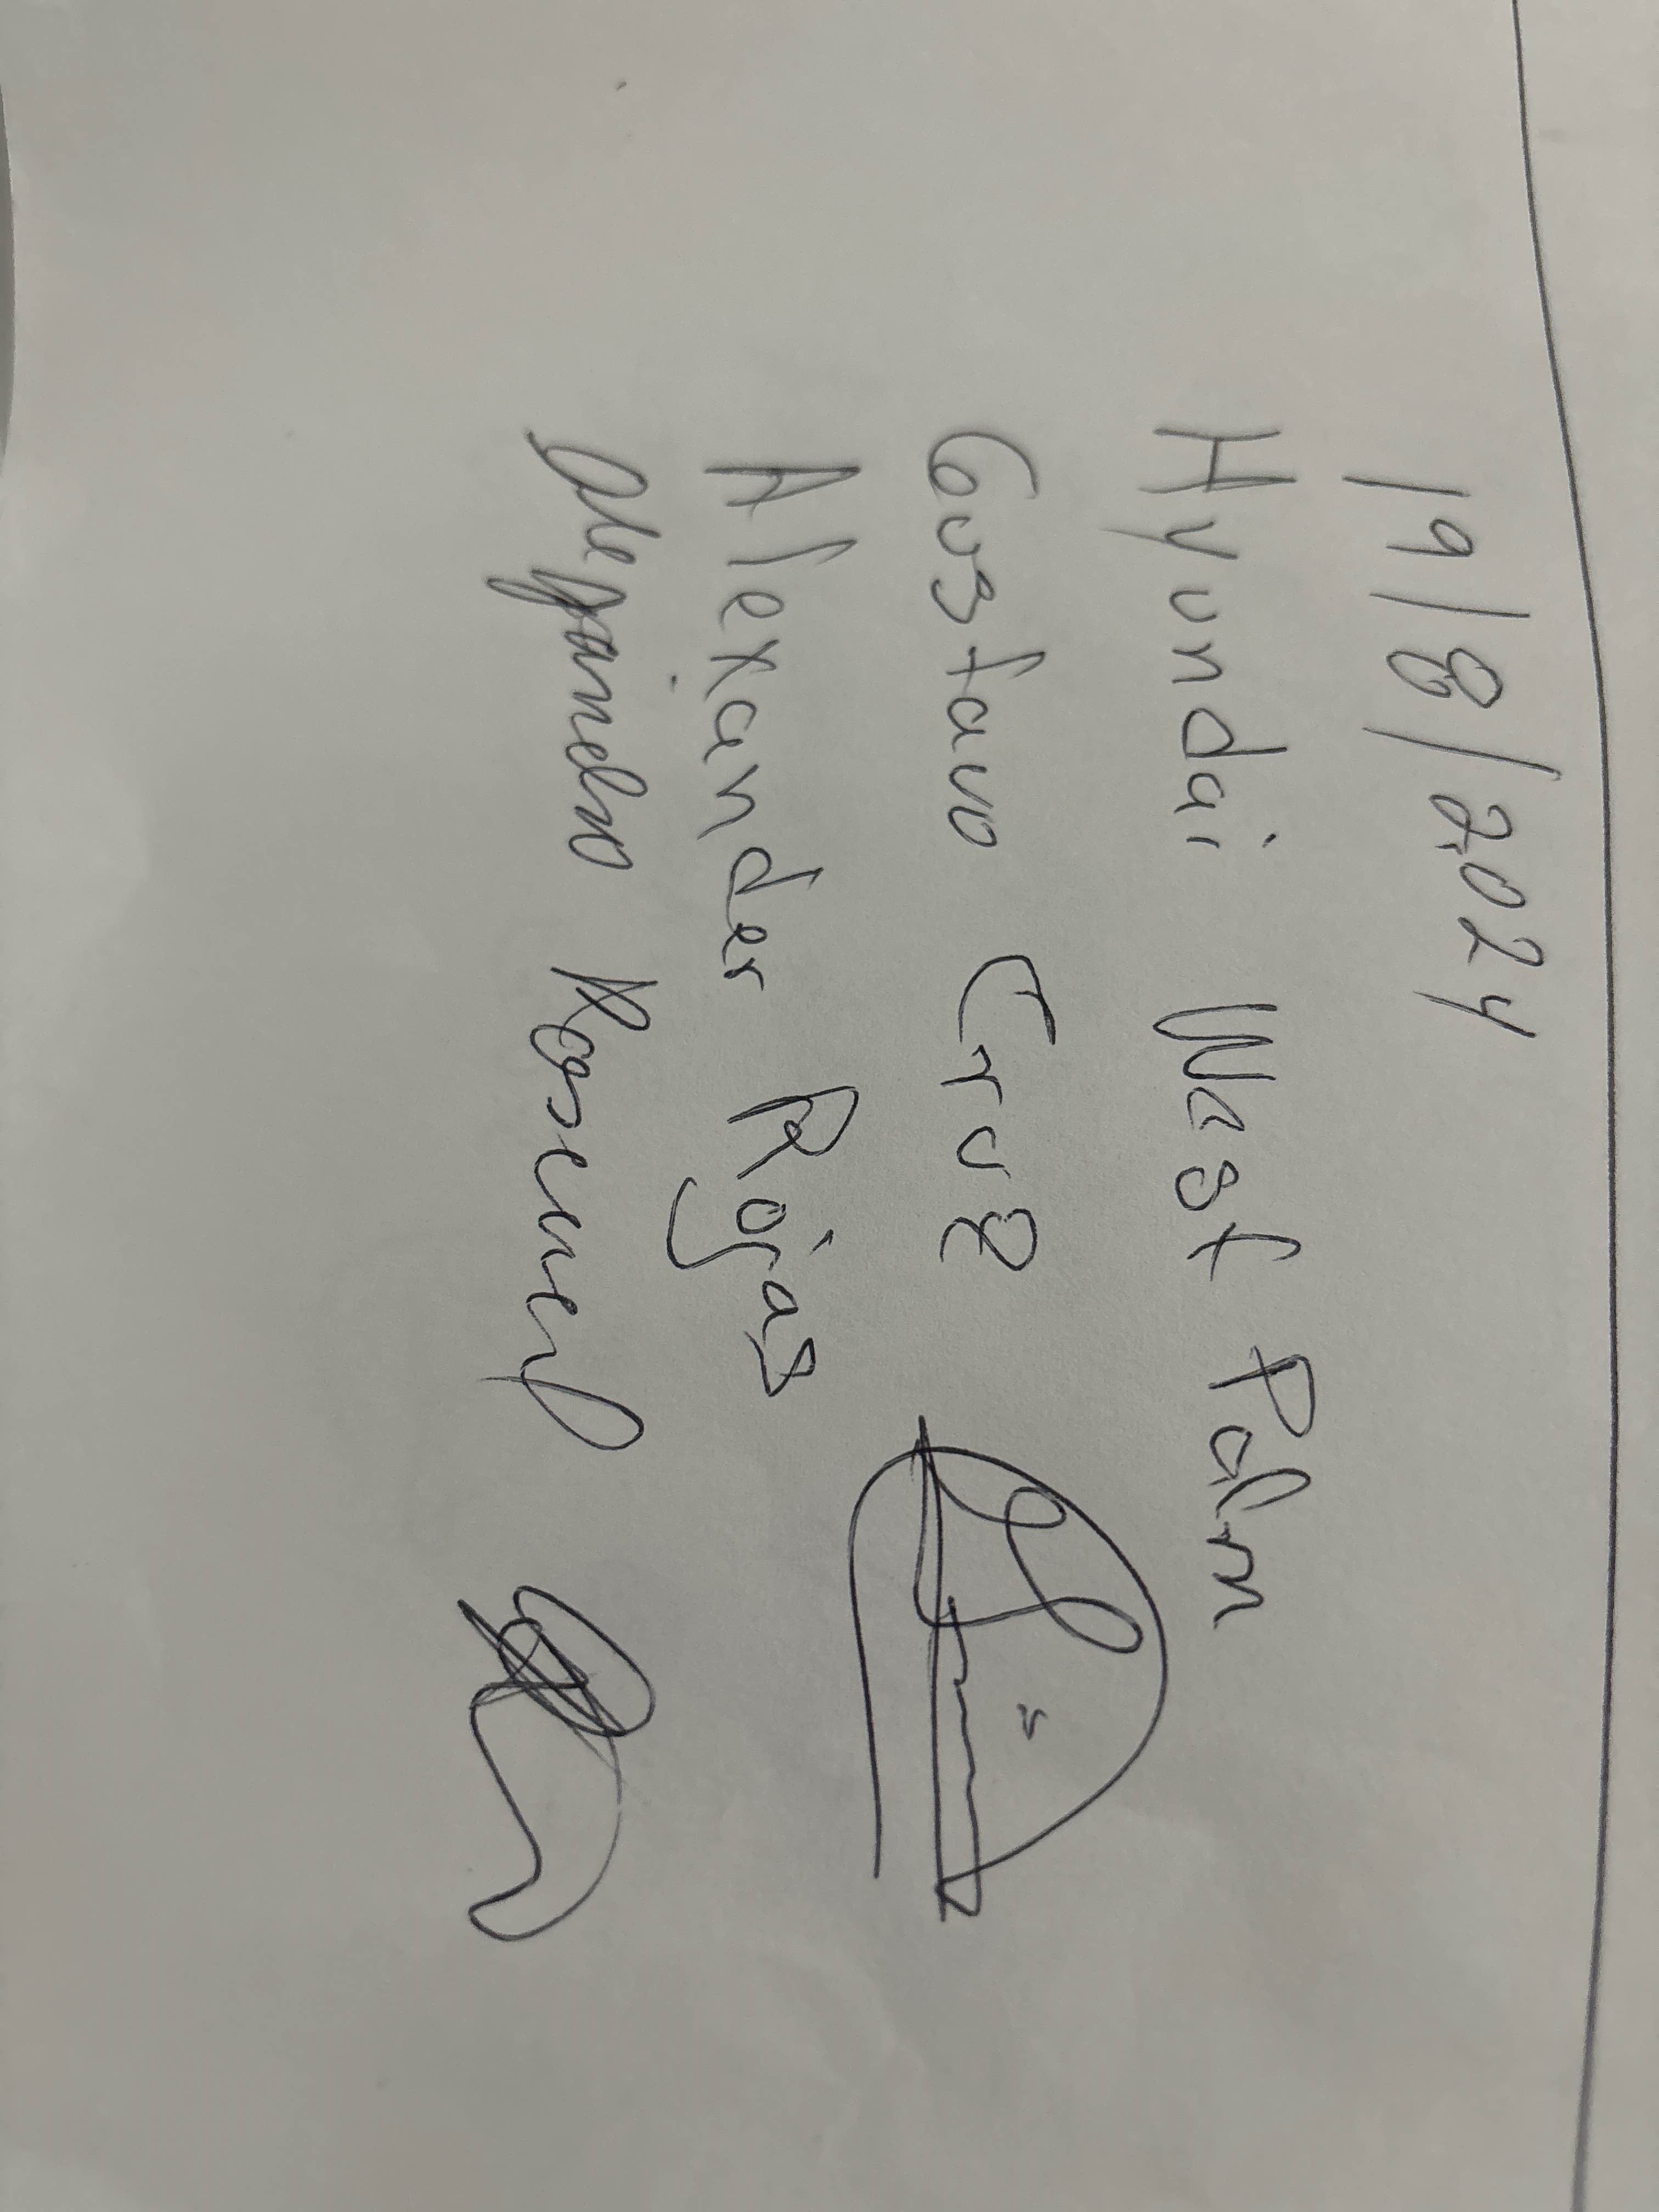 19/8/2024
Hyundai West Palm
Gustavo Cruz
Alexander Rojas
Alejandro